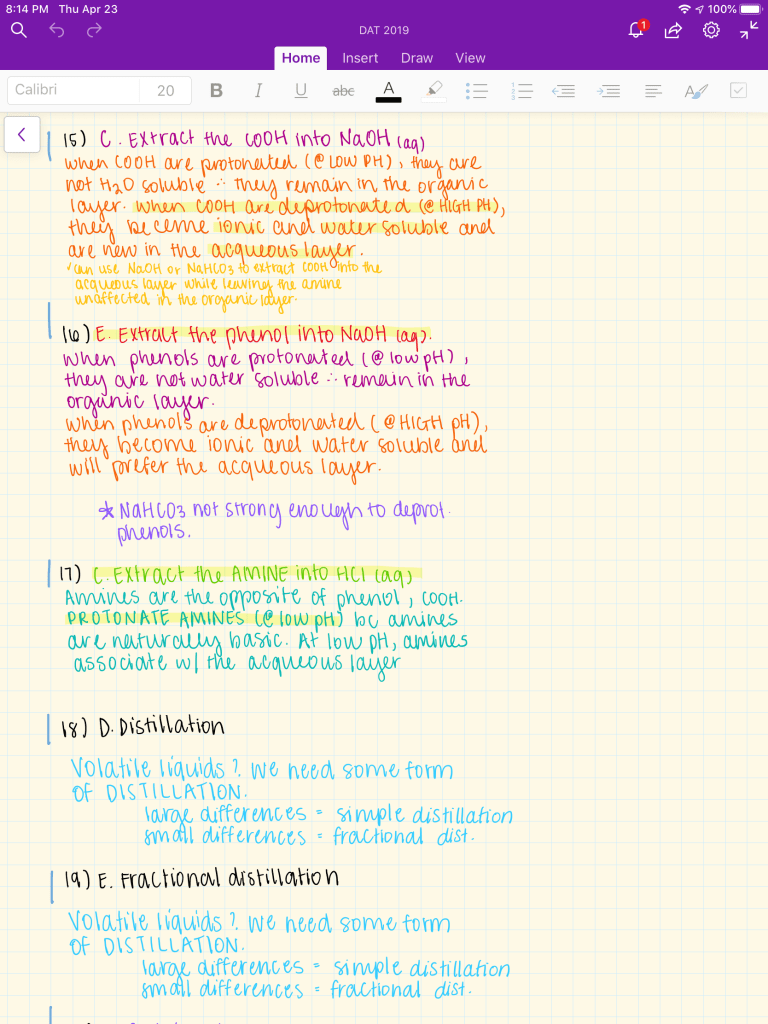 8:14 PM Thu Apr 23
100%
DAT 2019
1
Home Insert Draw View
Calibri 20 B I U abc A
15) C. Extract the COOH into NaOH (aq)
When COOH are protonated (@ LOW PH), they are
not H2O soluble ∴ they remain in the organic
layer. When COOH are deprotonated (@ HIGH PH),
they become ionic and water soluble and
are new in the acqueous layer.
✓ can use NaOH or NaHCO3 to extract COOH into the
acqueous layer while leaving the amine
unaffected in the organic layer.
16) E. Extract the phenol into NaOH (aq).
When phenols are protonated (@ low pH),
they are not water soluble ∴ remain in the
organic layer.
When phenols are deprotonated (@ HIGH pH),
they become ionic and water soluble and
will prefer the acqueous layer.
* NaHCO3 not strong enough to deprot.
phenols.
17) C. Extract the AMINE into HCl (aq)
Amines are the opposite of phenol, COOH.
PROTONATE AMINES (@ low pH) bc amines
are naturally basic. At low pH, amines
associate w/ the acqueous layer
18) D. Distillation
Volatile liquids? We need some form
OF DISTILLATION.
large differences = simple distillation
small differences = fractional dist.
19) E. Fractional distillation
Volatile liquids? We need some form
OF DISTILLATION.
large differences = simple distillation
small differences = fractional dist.